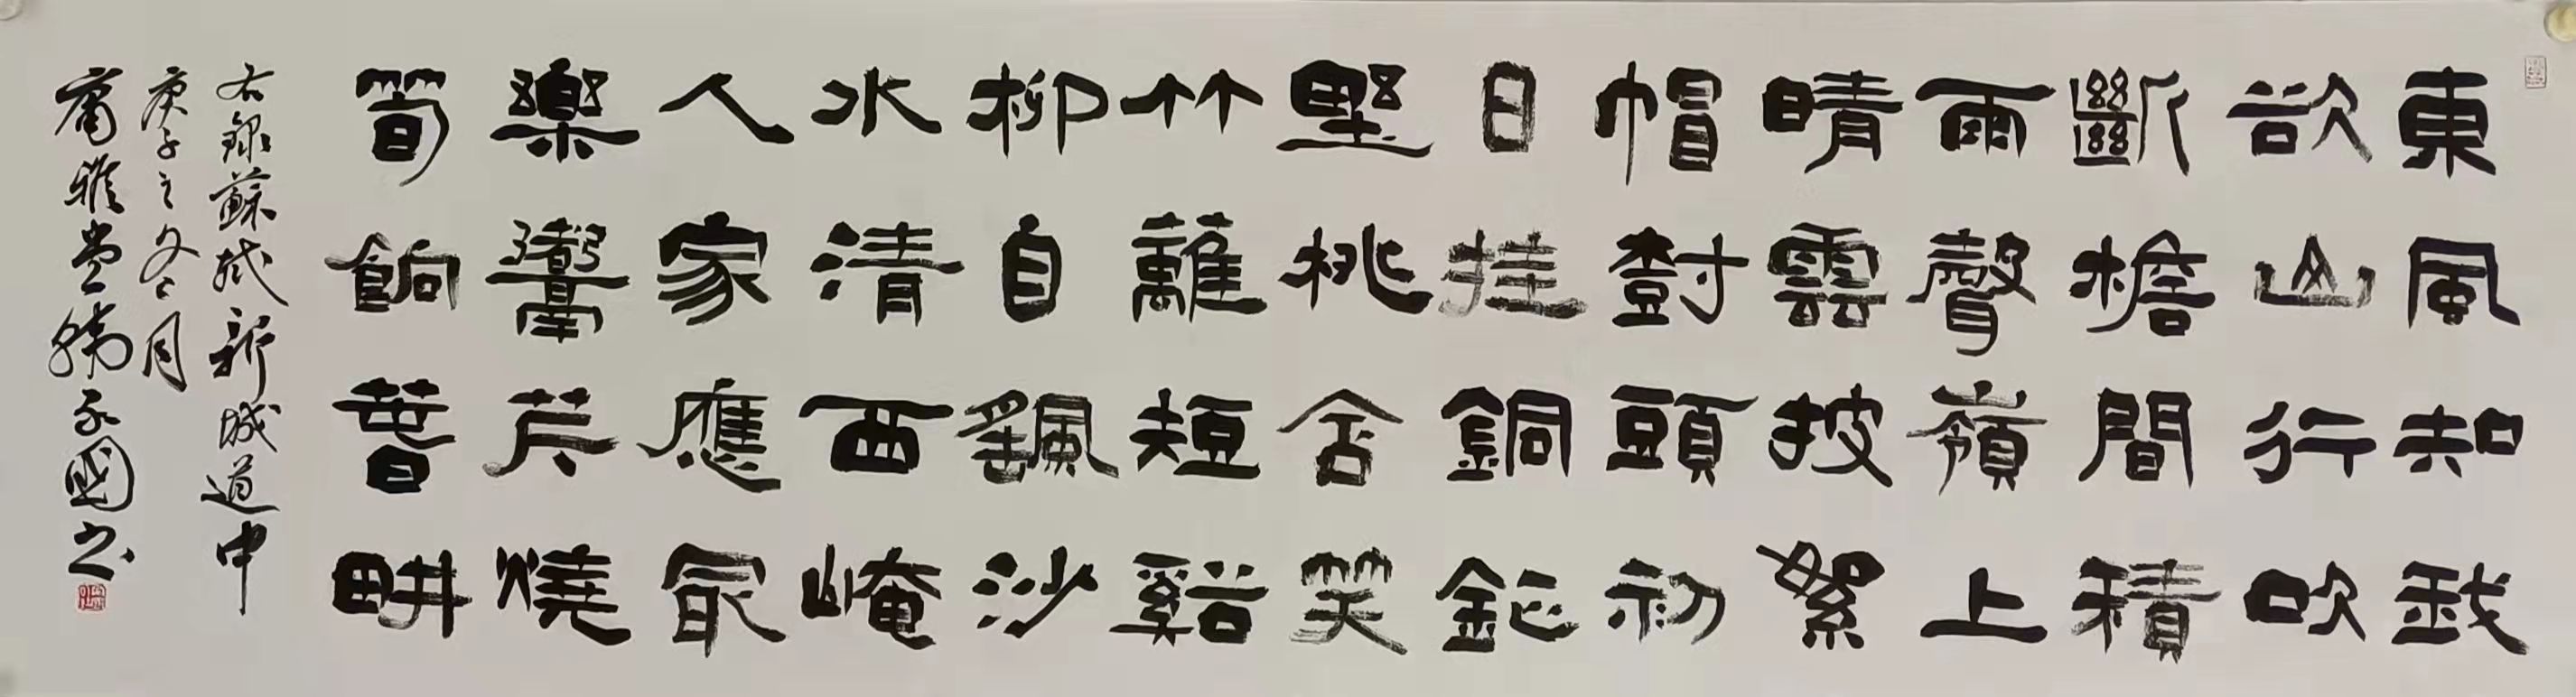 東風知我
欲山行吹
斷檐間積
雨聲嶺上
晴雲披絮
帽尌頭初
日挂銅鉦
野桃含笑
竹蘺短谿
柳自颻沙
水清西崦
人家應冣
樂鬻芹燒
筍餉萅畊
右錄蘇軾新城道中
庚子之冬月
雅堂韓永國书